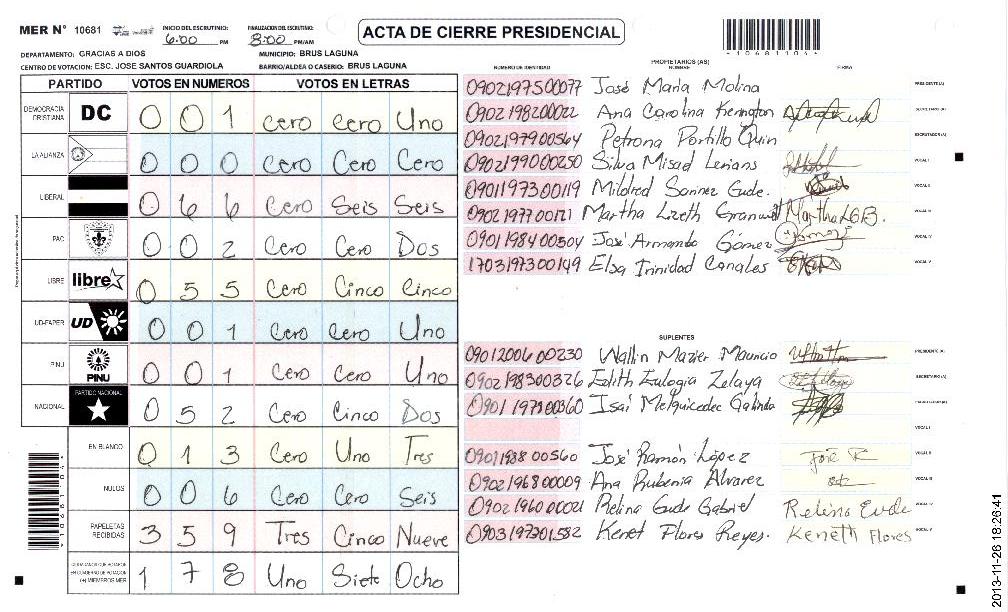 MER N° 10681 INICIO DEL ESCRUTINIO: 6:00 PM FINALIZACION DEL ESCRUTINIO: 8:00 PM/AM ACTA DE CIERRE PRESIDENCIAL
DEPARTAMENTO: GRACIAS A DIOS MUNICIPIO: BRUS LAGUNA
CENTRO DE VOTACION: ESC. JOSE SANTOS GUARDIOLA BARRIO/ALDEA O CASERIO: BRUS LAGUNA
PARTIDO VOTOS EN NUMEROS VOTOS EN LETRAS
DEMOCRACIA CRISTIANA DC 0 0 1 Cero Cero Uno
LA ALIANZA 0 0 0 Cero Cero Cero
LIBERAL 0 6 6 Cero Seis Seis
PAC 0 0 2 Cero Cero Dos
LIBRE libre 0 5 5 Cero Cinco Cinco
UD-FAPER UD 0 0 1 Cero Cero Uno
PINU PINU 0 0 1 Cero Cero Uno
NACIONAL PARTIDO NACIONAL 0 5 2 Cero Cinco Dos
EN BLANCO 0 1 3 Cero Uno Tres
NULOS 0 0 6 Cero Cero Seis
PAPELETAS RECIBIDAS 3 5 9 Tres Cinco Nueve
(+) MIEMBROS MER 1 7 8 Uno Siete Ocho
*10681104*
PROPIETARIOS (AS)
NUMERO DE IDENTIDAD NOMBRE FIRMA
0902197500077 José Maria Molina PRESIDENTE (A)
0902198200022 Ana Carolina Kerington SECRETARIO (A)
0902197900564 Petrona Portillo Quin ESCRUTADOR (A)
0902199000250 Silvia Misad Lerians VOCAL I
0901197300119 Mildred Sannez Gude. VOCAL II
0902197700121 Martha Lizeth Granwell Martha LGB. VOCAL III
0901198400504 José Armando Gómez Gomez VOCAL IV
1703197300149 Elsa Trinidad Canales VOCAL V
SUPLENTES
0901200600230 Wallin Mazier Mauricio PRESIDENTE (A)
0902198300326 Edith Eulogia Zelaya SECRETARIO (A)
0901197300360 Isai Melquicedec Galinda
VOCAL I
0901198800560 José Ramón López José R VOCAL II
0902196800009 Ana Rubenia Alvarez VOCAL III
0902196000021 Relina Gude Gabriel Relina Eude VOCAL IV
0903197301582 Kenet Flores Reyes. Keneth Flores VOCAL V
2013-11-26 18:26:41